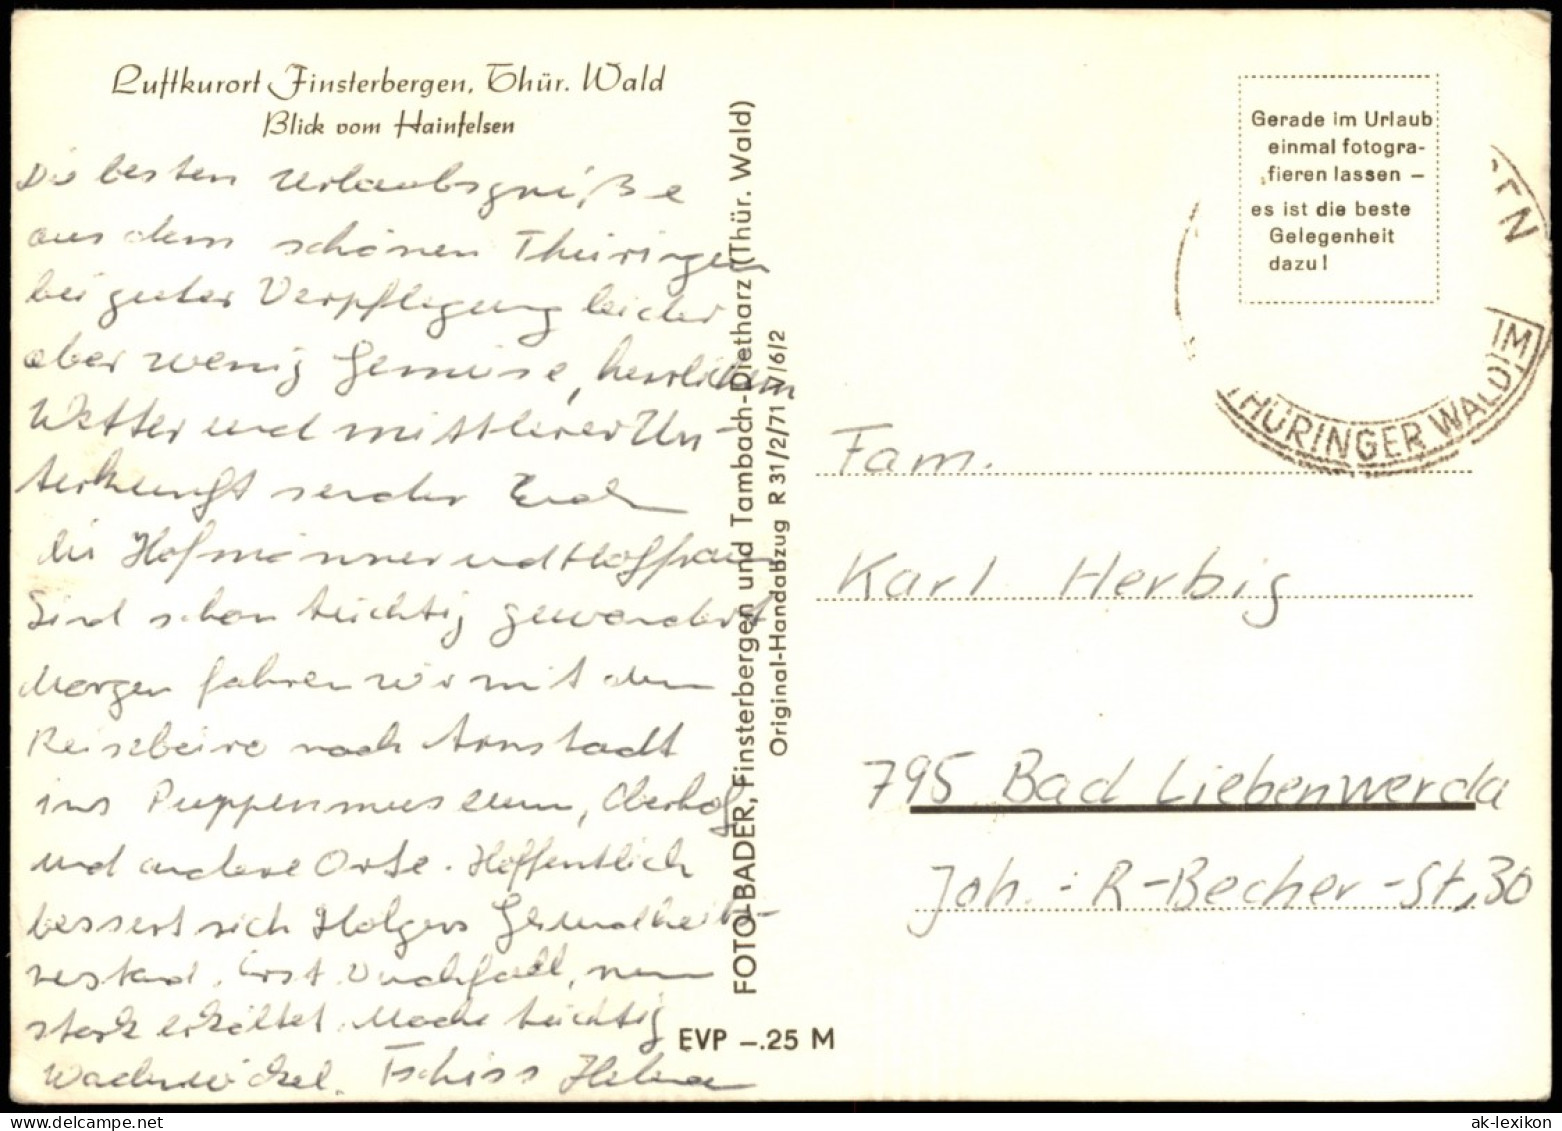 Luftkurort Finsterbergen, Thür. Wald
Blick vom Hainfelsen
Die besten Urlaubsgrüße
aus dem schönen Thüringen
bei guter Verpflegung leider
aber wenig Gemüse, herrlichem
Wetter und mittlerer Un-
terkunft senden Euch
die Hofmänner und Hoffrauen
Sind schon tüchtig gewandert
Morgen fahren wir mit dem
Reisebüro nach Arnstadt
ins Puppenmuseum, Oberhof
und andere Orte. Hoffentlich
bessert sich Holgers Gesundheits-
zustand. Erst Durchfall, nun
stark erkältet. Mache tüchtig
Wadenwickel. Tschüss Helena
FOTO-BADER, Finsterbergen und Tambach-Dietharz (Thür. Wald)
Original-Handabzug R 31/2/71 V/6/2
EVP –.25 M
Gerade im Urlaub
einmal fotogra-
fieren lassen –
es ist die beste
Gelegenheit
dazu!
GEN
IM
THÜRINGER WALD
Fam.
Karl Herbig
795 Bad Liebenwerda
Joh.-R-Becher-St,30
ak-lexikon